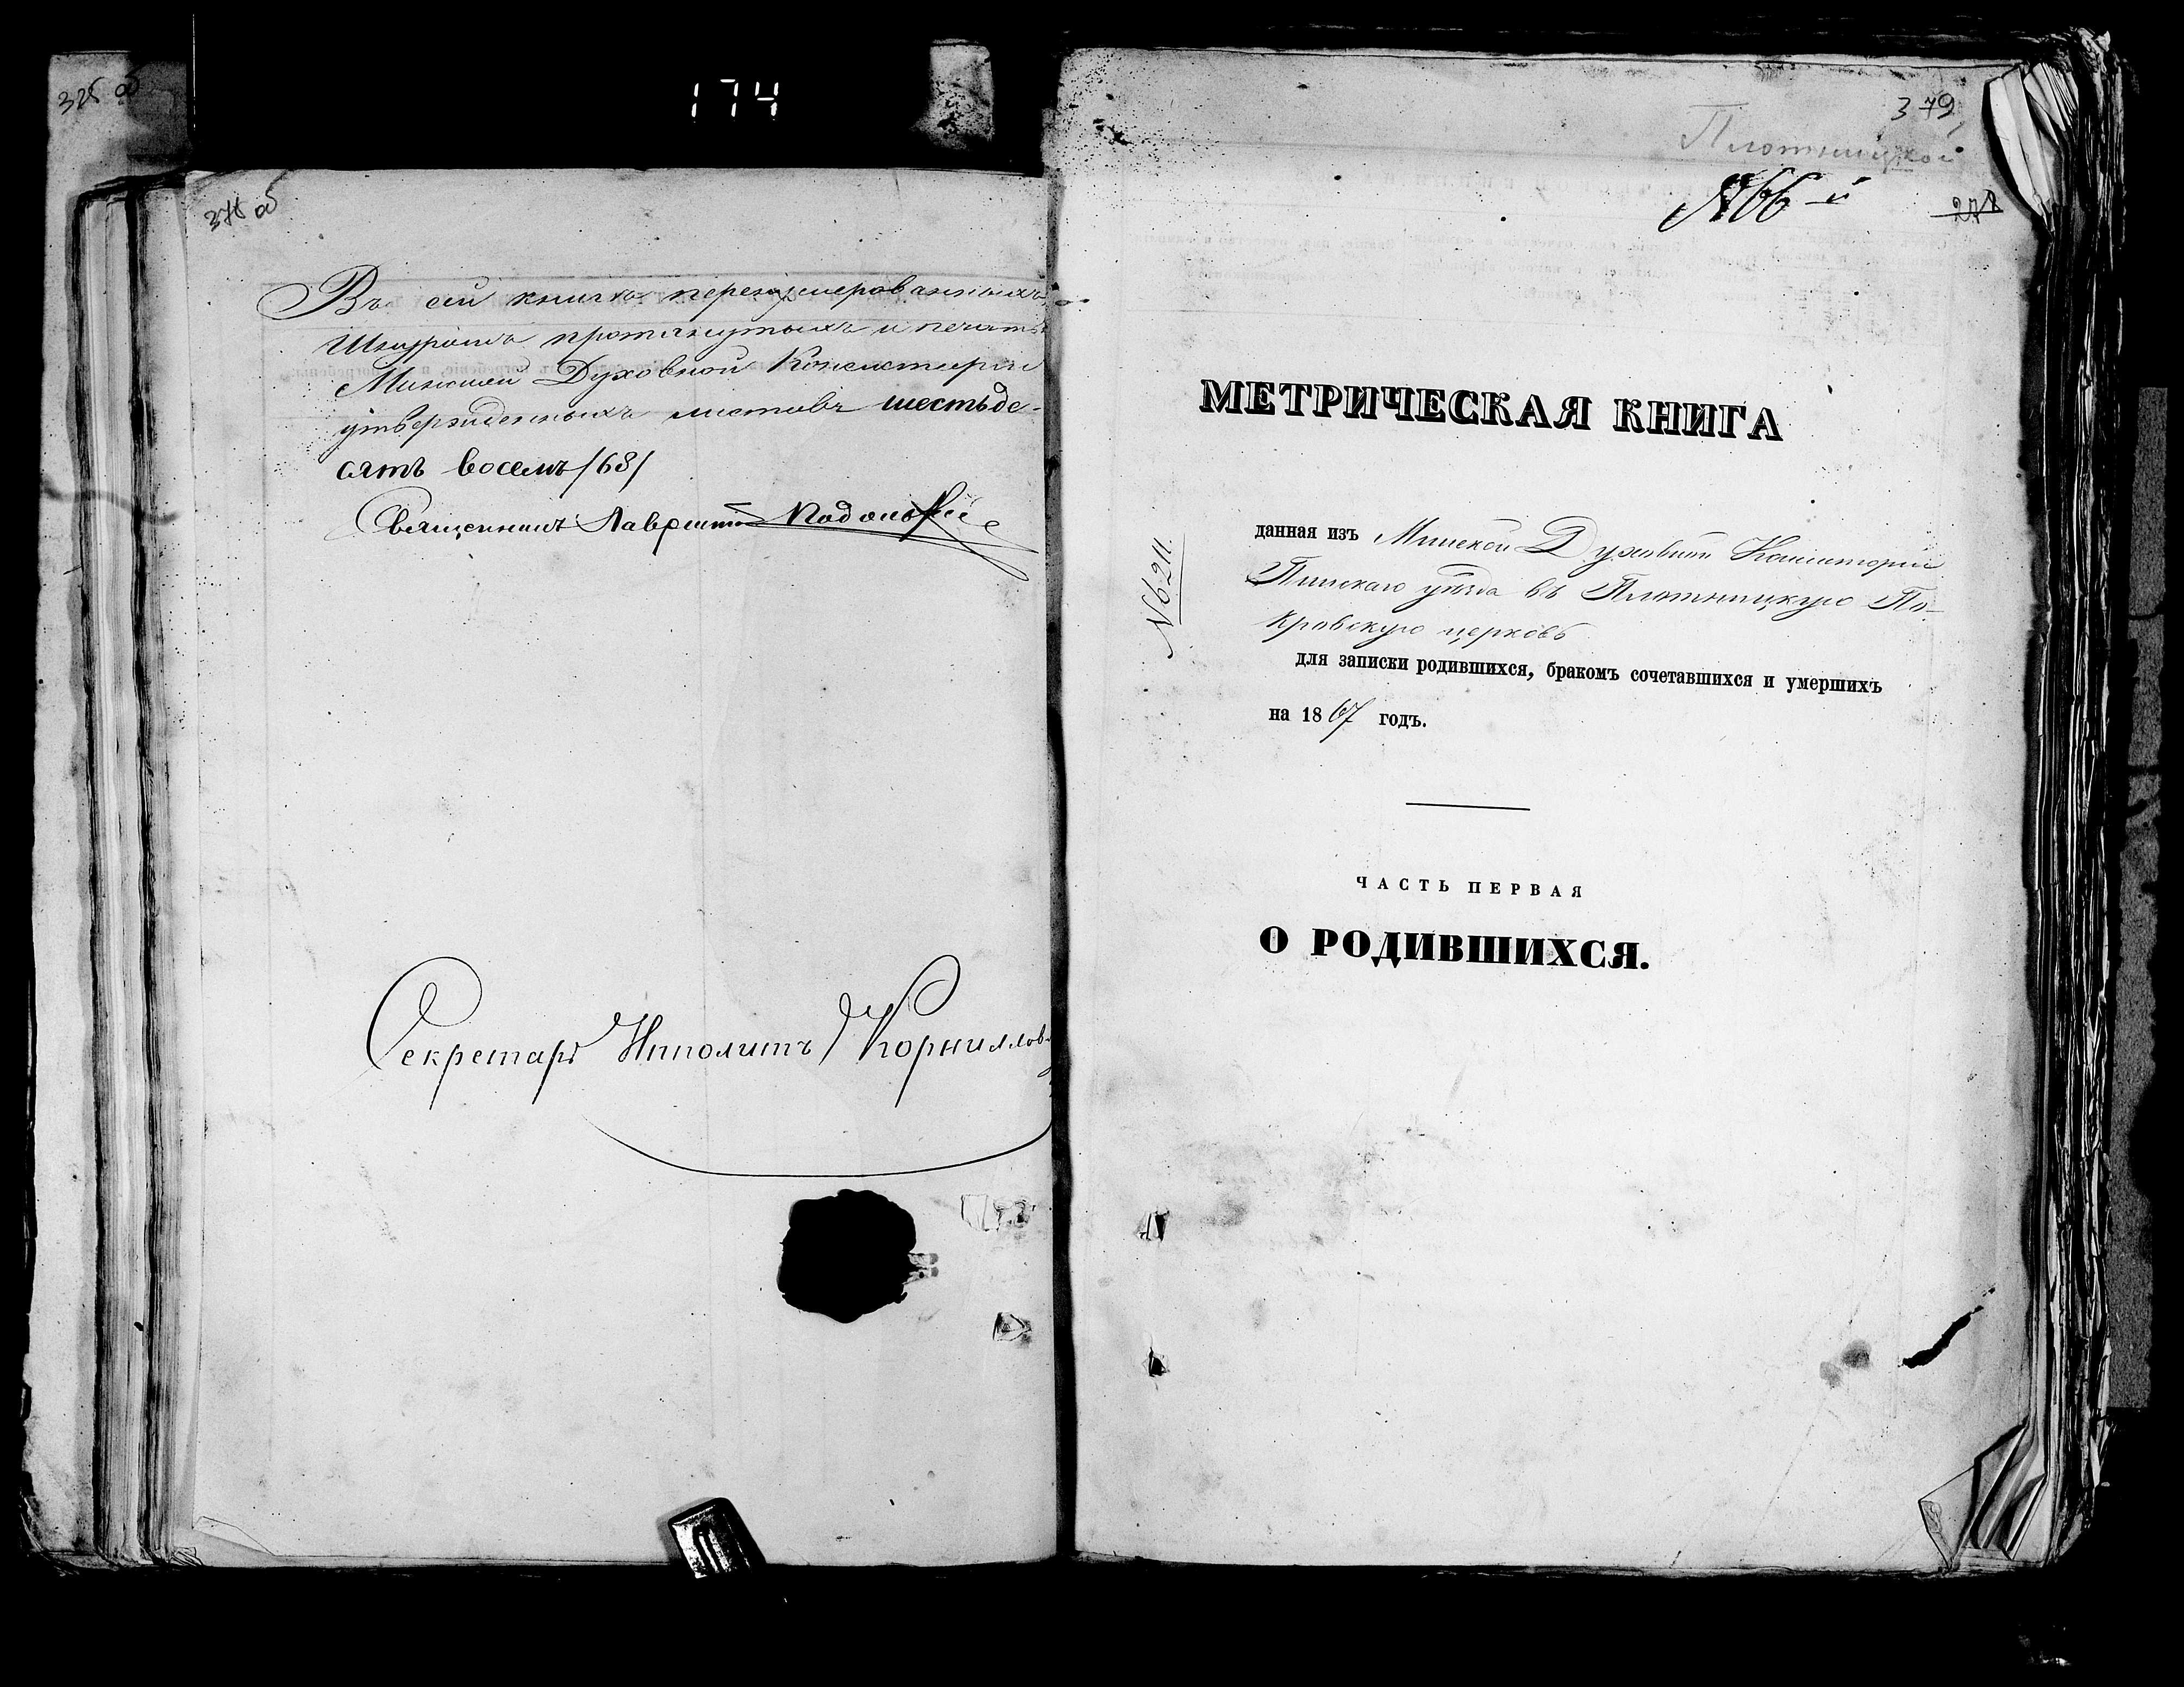 174
378 об
Въ сей книгѣ перенумерованныхъ,
Шнуромъ протянутыхъ и печатью
Минской Духовной Консисторіи
утвержденныхъ листовъ шестьде-
сятъ восемъ /68/
Священникъ Лаврентій Подольскій
Секретарь Ипполитъ Корниллов
379
Плотницкой
№ 66-й
№ 6211.
МЕТРИЧЕСКАЯ КНИГА
данная изъ Минской Духовной Консисторіи
Пинскаго уѣзда въ Плотницкую По-
кровскую церковь
для записки родившихся, бракомъ сочетавшихся и умершихъ
на 1867 годъ.
ЧАСТЬ ПЕРВАЯ
О РОДИВШИХСЯ.